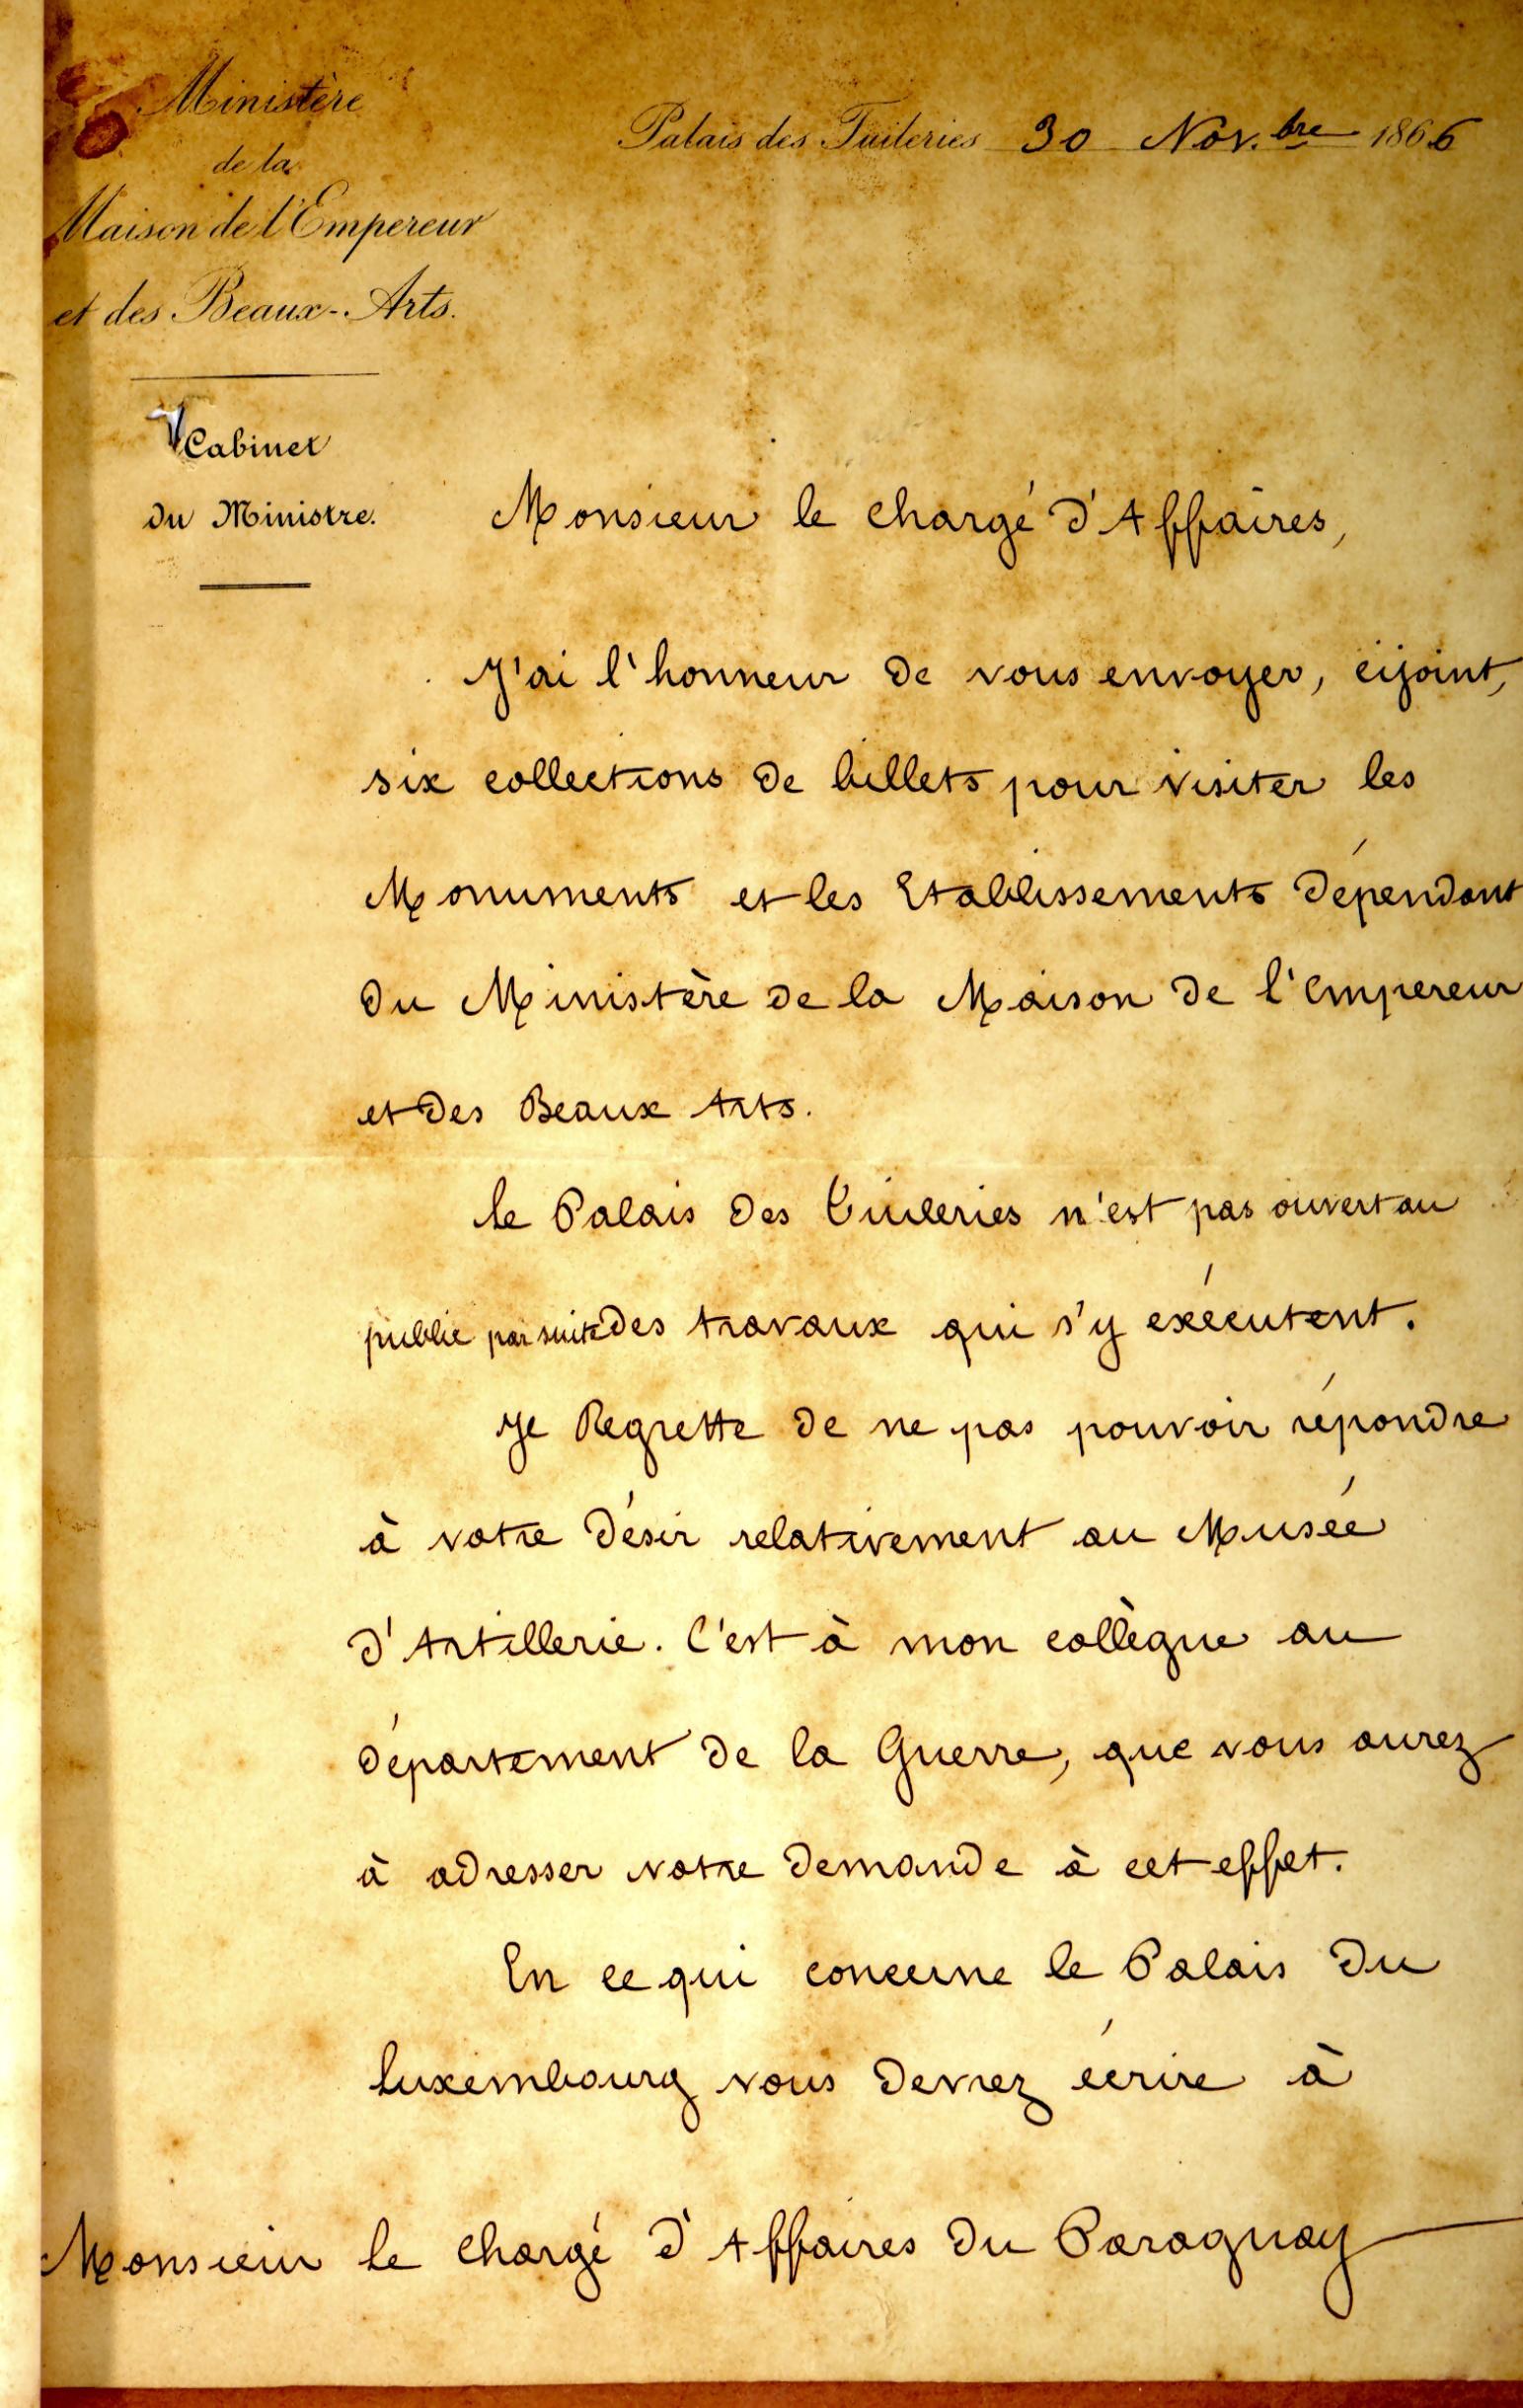 Ministère
de la
Maison de l'Empereur
et des Beaux-Arts.
Palais des Tuileries 30 Nov.bre 1866
Cabinet
du Ministre.
Monsieur le chargé d'Affaires,
J'ai l'honneur de vous envoyer, cijoint,
six collections de billets pour visiter les
Monuments et les Etablissements dépendant
du Ministère de la Maison de l'Empereur
et des Beaux Arts.
Le Palais des Tuileries n'est pas ouvert au
public par suite des travaux qui s'y exécutent.
Je Regrette de ne pas pouvoir répondre
à votre désir relativement au Musée
d'Artillerie. C'est à mon collègue au
département de la Guerre, que vous aurez
à adresser votre demande à cet effet.
En ce qui concerne le Palais du
Luxembourg vous devrez écrire à
Monsieur le chargé d'Affaires du Paraguay